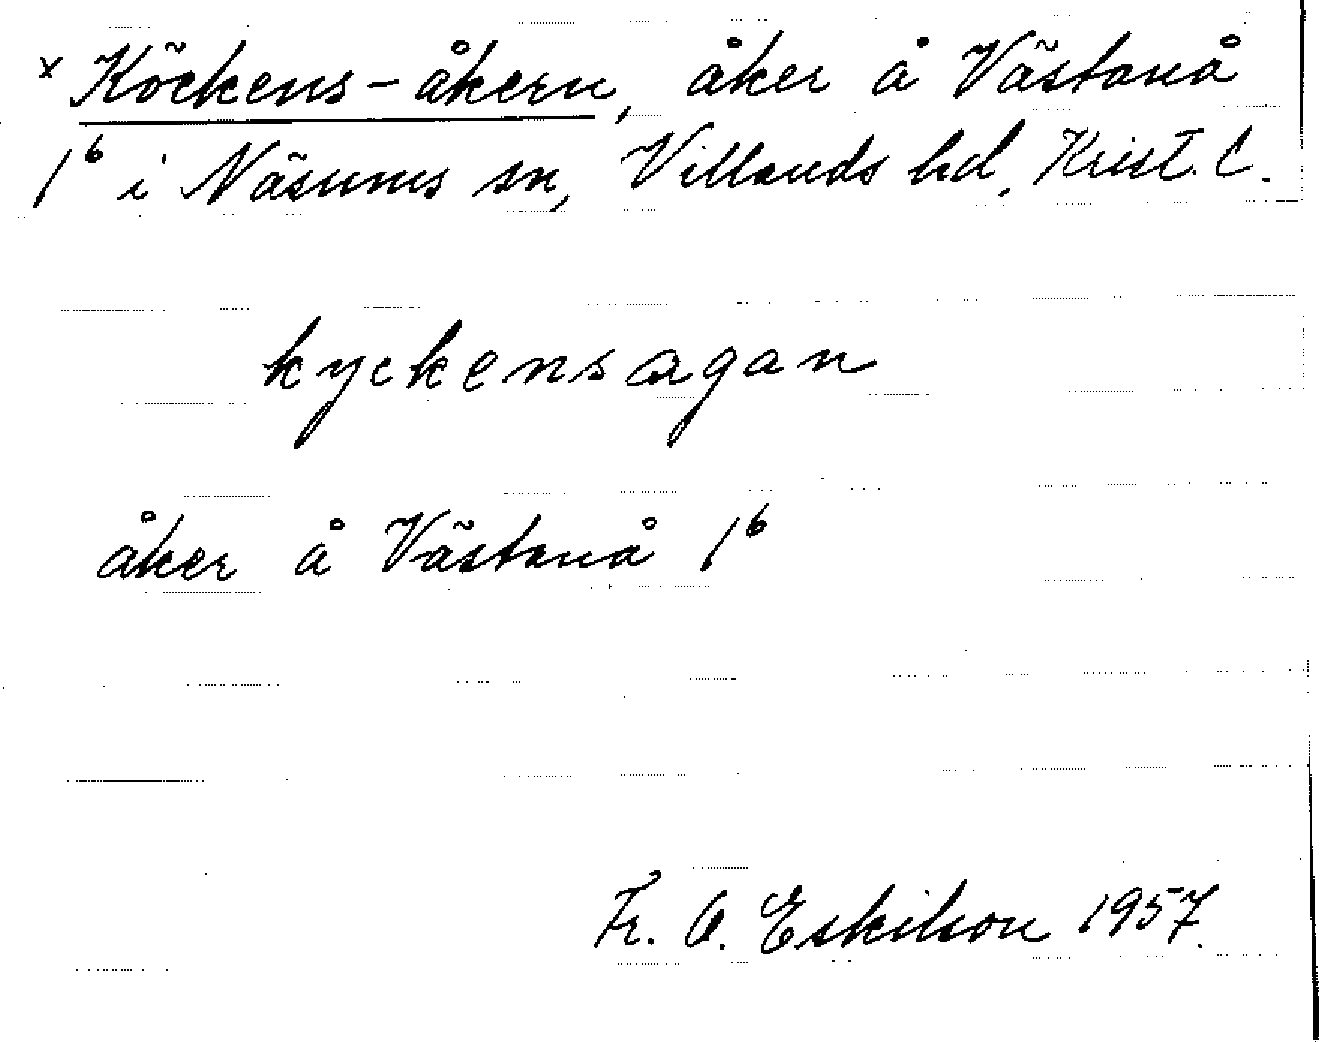 x Köckens-åkern, åker å Västanå
1b i Näsums sn, Villands hd, Krist. l.
kyckensagan
åker å Västanå 1b
Fr. O. Eskilson 1957.